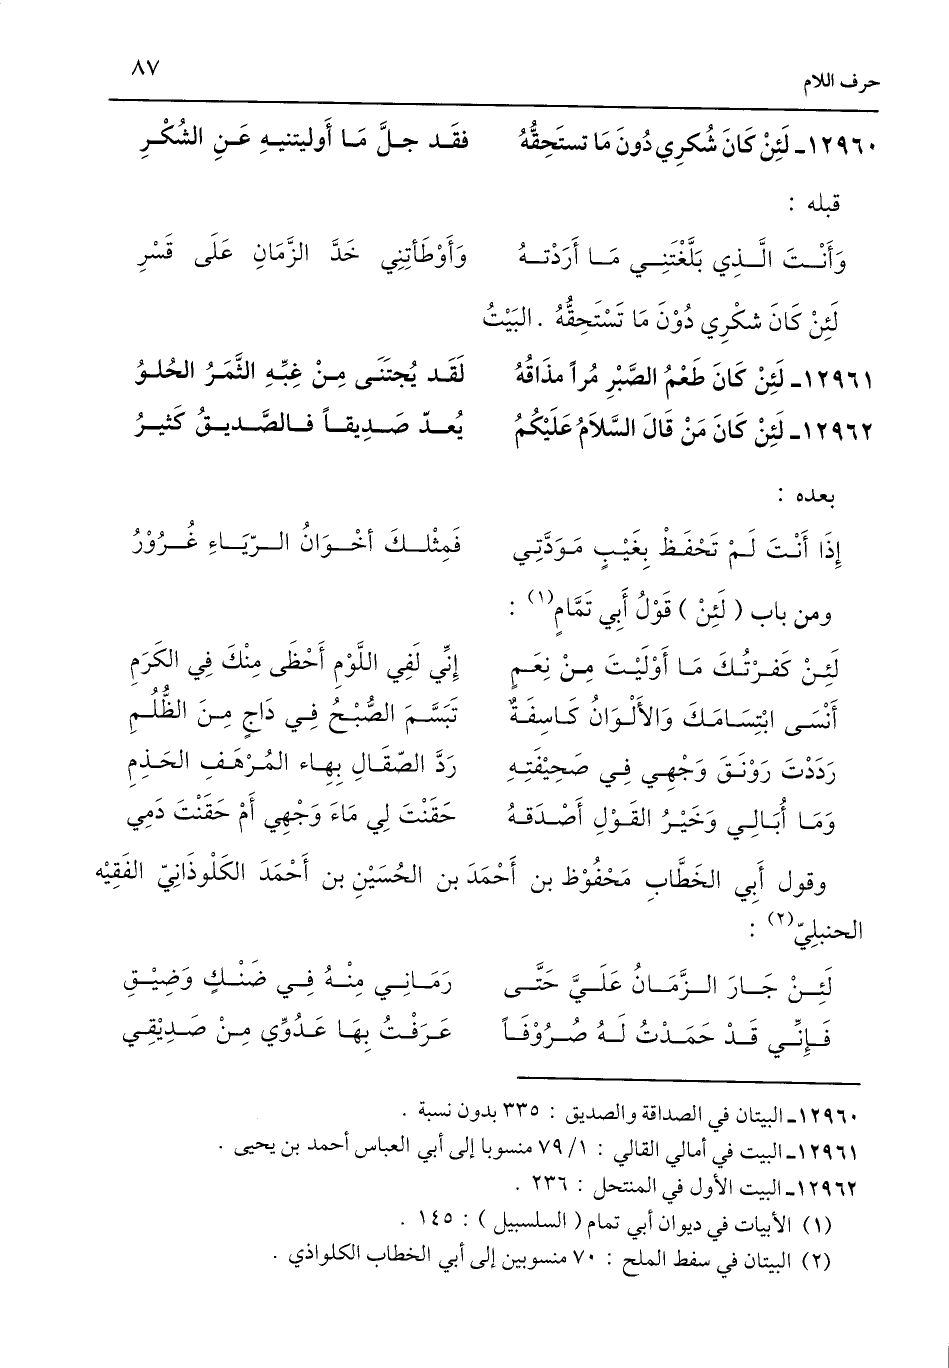 حرف اللام ٨٧
١٢٩٦٠ـ لَئِنْ كَانَ شُكرِي دُونَ مَا تستَحِقُّهُ فقَـد جـلَّ مَـا أَوليتنيـهِ عَـنِ الشُكْـرِ
قبله :
وَأَنْـتَ الَّـذِي بَلَّغْتَنِـي مَـا أَرَدْتـهُ وَأَوْطَأتِنِي خَدَّ الزَّمَانِ عَلَى قَسْرِ
لَئِنْ كَانَ شكْرِي دُوْنَ مَا تَسْتَحِقُّهُ . البَيْتُ
١٢٩٦١ـ لَئِنْ كَانَ طَعْمُ الصَّبْرِ مُراً مذَاقُهُ لَقَـد يُجتَنَـى مِـنْ غِبِّـهِ الثَّمَـرُ الحُلـوُ
١٢٩٦٢ـ لَئِنْ كَانَ مَنْ قَالَ السَّلاَمُ عَلَيْكُمُ يُعـدّ صَـدِيقـاً فـالصَّـدِيـقُ كَثيـرُ
بعده :
إِذَا أَنْـتَ لَـمْ تَحْفَـظْ بِغَيْـبٍ مَـوَدَّتِي فَمِثْلـكَ أخْـوَانُ الـرِّيَـاءِ غُـرُوْرُ
ومن باب ( لَئِنْ ) قَوْلُ أَبِي تَمَّامٍ(١) :
لَئِـنْ كَفَـرْتُـكَ مَـا أَوْلَيْـتَ مِـنْ نِعَـمٍ إِنِّي لَفِي اللَّوْمِ أَحْظَى مِنْكَ فِي الكَرَمِ
أَنْسَـى ابْتِسَـامَـكَ وَالأَلْـوَانُ كَـاسِفَـةٌ تَبَسَّـمَ الصُّبْـحُ فِـي دَاجٍ مِـنَ الظُّلُـمِ
رَدَدْتَ رَوْنَـقَ وَجْهِـي فِـي صَحِيْفَتِـهِ رَدَّ الصِّقَـالِ بِهَـاء المُـرْهَـفِ الحَـذِمِ
وَمَـا أُبَـالِـي وَخَيْـرُ القَـوْلِ أَصْـدَقـهُ حَقَنْتَ لِي مَاءَ وَجْهِي أَمْ حَقَنْتَ دَمِي
وقول أَبِي الخَطَّابِ مَحْفُوْظِ بن أَحْمَدَ بن الحُسَيْنِ بن أَحْمَدَ الكَلْوذَانِيّ الفَقِيْه
الحنبليّ(٢) :
لَئِـنْ جَـارَ الـزَّمَـانُ عَلَـيَّ حَتَّـى رَمَـانِـي مِنْـهُ فِـي ضَنْـكٍ وَضِيْـقِ
فَـإِنِّـي قَـدْ حَمَـدْتُ لَـهُ صُـرُوْفَـاً عَـرَفْـتُ بِهَـا عَـدُوِّي مِـنْ صَـدِيْقِـي
١٢٩٦٠ـ البيتان في الصداقة والصديق : ٣٣٥ بدون نسبة .
١٢٩٦١ـ البيت في أمالي القالي : ١/ ٧٩ منسوبا إلى أبي العباس أحمد بن يحيى .
١٢٩٦٢ـ البيت الأول في المنتحل : ٢٣٦ .
(١) الأبيات في ديوان أبي تمام ( السلسبيل ) : ١٤٥ .
(٢) البيتان في سفط الملح : ٧٠ منسوبين إلى أبي الخطاب الكلواذي .